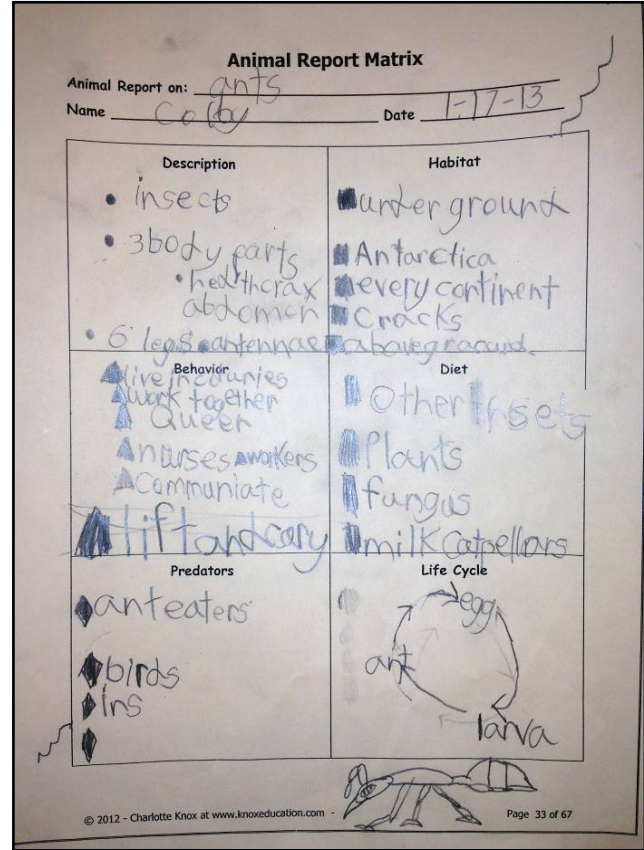 Animal Report Matrix
Animal Report on: ants
Name Colby Date 1-17-13
Description
• insects
• 3 body parts
• hed thorax
abdomen
• 6 legs • antennae
Habitat
under ground
Antarctica
every continent
Cracks
above ground.
Behavior
live in colunies
work together
Queen
nurses workers
Communiate
lift and cary
Diet
Other Insets
Plants
fungus
milk catpellars
Predators
anteaters
birds
Ins
Life Cycle
egg
larva
ant
© 2012 - Charlotte Knox at www.knoxeducation.com -
Page 33 of 67